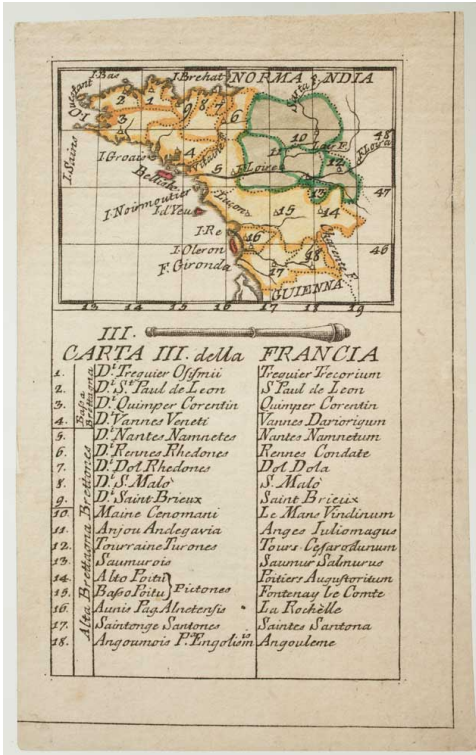 I. Bas
I. Brehat
NORMANDIA
I.O Ouessant
I. Sains
I. Groais
Bellisle
Vilaine F.
Sarta F.
Loir F.
F. Loira
F. Loire
I. Noirmoutier
I. d'Yeu
Luçon
I. Re
I. Oleron
F. Gironda
Charente F.
GUIENNA
1
2
3
4
5
6
7
8
9
10
11
12
13
14
15
16
17
18
48
47
46
13 14 15 16 17 18 19
III.
CARTA III. della FRANCIA
Bassa Brettagna
Alta Brettagna Brettones
1. D.i Treguier Osismii Treguier Trecorium
2. D.i S.t Paul de Leon S Paul de Leon
3. D.i Quimper Corentin Quimper Corentin
4. D.i Vannes Veneti Vannes Dariorigum
5. D.i Nantes Namnetes Nantes Namnetum
6. D.i Rennes Rhedones Rennes Condate
7. D.i Dol Rhedones Dol Dola
8. D.i S. Malò S. Malò
9. D.i Saint Brieux Saint Brieux
10. Maine Cenomani Le Mans Vindinum
11. Anjou Andegavia Anges Iuliomagus
12. Tourraine Turones Tours Cesarodunum
13. Saumurois Saumur Salmurus
14. Alto Poitu } Pictones Poitiers Augustoritum
15. Basso Poitu Fontenay Le Comte
16. Aunis Pag. Alnetensis La Rochèlle
17. Saintonge Santones Saintes Santona
18. Angoumois P.s Engolism.is Angouleme